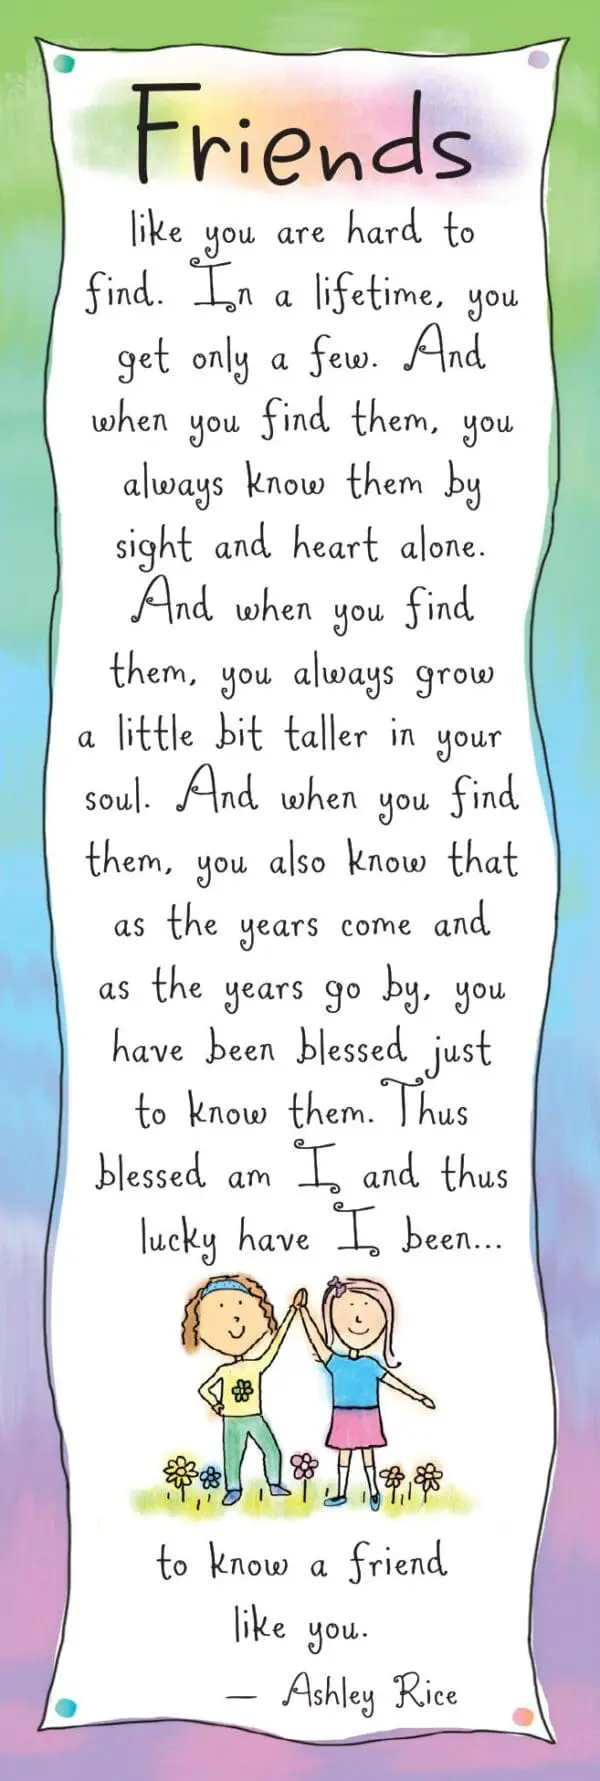 Friends
like you are hard to
find. In a lifetime, you
get only a few. And
when you find them, you
always know them by
sight and heart alone.
And when you find
them, you always grow
a little bit taller in your
soul. And when you find
them, you also know that
as the years come and
as the years go by, you
have been blessed just
to know them. Thus
blessed am I and thus
lucky have I been...
to know a friend
like you.
— Ashley Rice